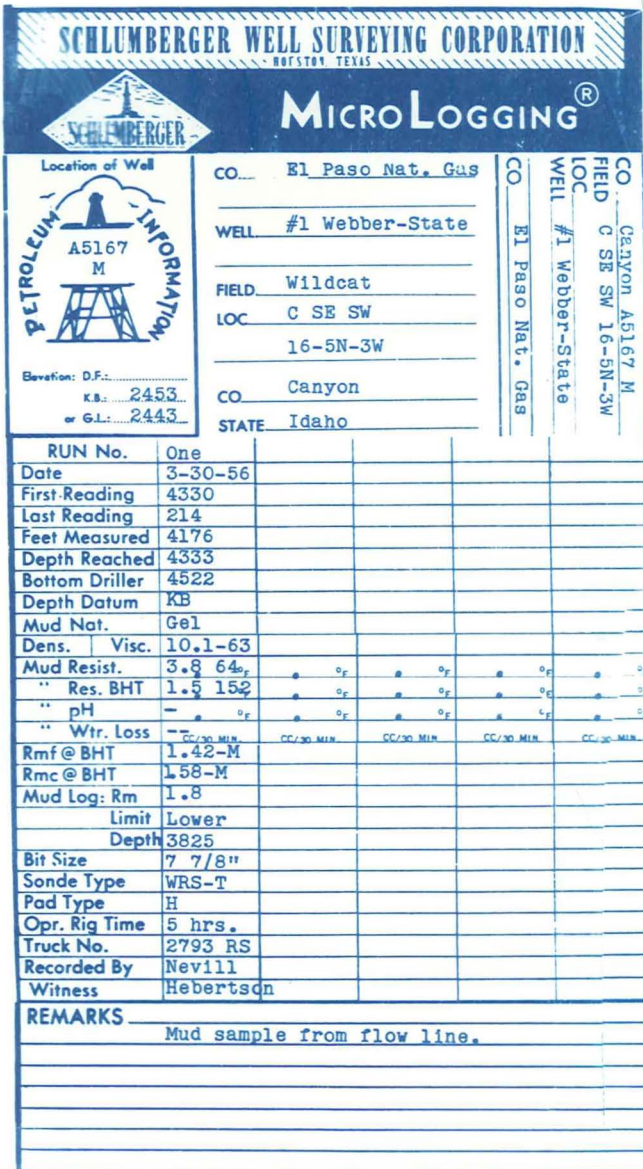 SCHLUMBERGER WELL SURVEYING CORPORATION
HOUSTON, TEXAS
SCHLUMBERGER
MICROLOGGING®
Location of Well
PETROLEUM INFORMATION
A5167
M
Elevation: D.F.:
K.B.: 2453
or G.L.: 2443
CO. El Paso Nat. Gas
WELL #1 Webber-State
FIELD Wildcat
LOC C SE SW
16-5N-3W
CO Canyon
STATE Idaho
CO. Canyon A5167 M
FIELD C SE SW 16-5N-3W
LOC
WELL #1 Webber-State
CO El Paso Nat. Gas
RUN No. One
Date 3-30-56
First Reading 4330
Last Reading 214
Feet Measured 4176
Depth Reached 4333
Bottom Driller 4522
Depth Datum KB
Mud Nat. Gel
Dens. | Visc. 10.1-63
Mud Resist. 3.8 64 °F . °F . °F . °F .
" Res. BHT 1.5 152 °F . °F . °F . °F .
" pH - . °F . °F . °F . °F .
" Wtr. Loss -- CC/30 MIN. CC/30 MIN. CC/30 MIN. CC/30 MIN. CC/30 MIN.
Rmf @ BHT 1.42-M
Rmc @ BHT 1.58-M
Mud Log: Rm 1.8
Limit Lower
Depth 3825
Bit Size 7 7/8"
Sonde Type WRS-T
Pad Type H
Opr. Rig Time 5 hrs.
Truck No. 2793 RS
Recorded By Nevill
Witness Hebertson
REMARKS
Mud sample from flow line.